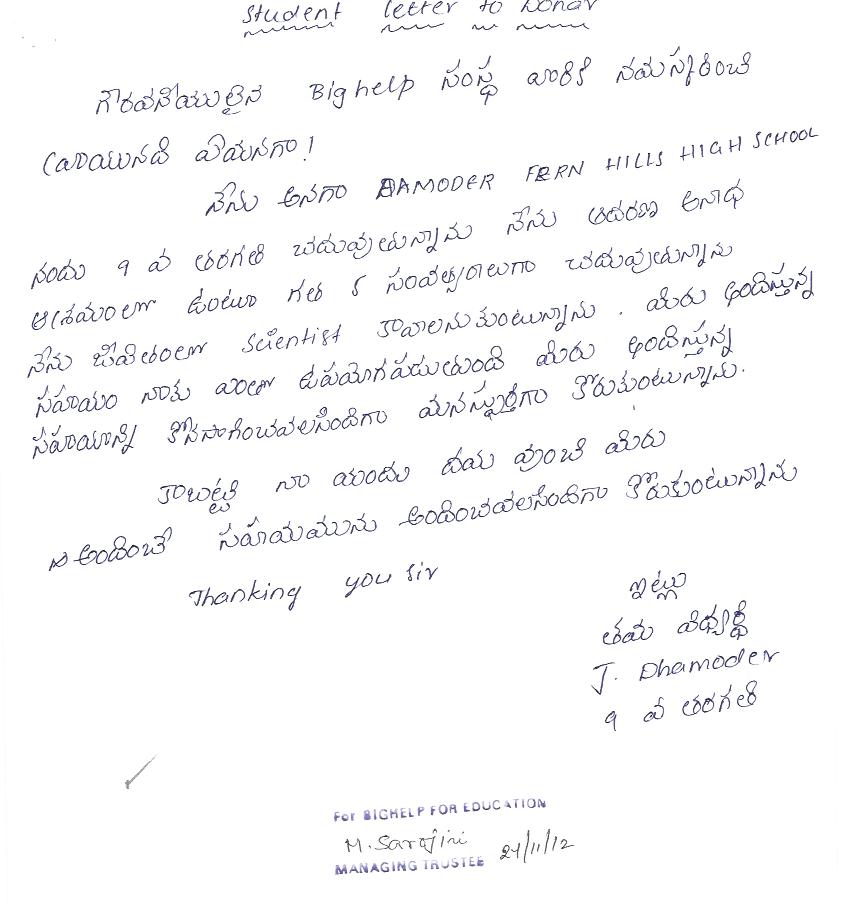 Student letter to Donar
గౌరవనీయులైన Bighelp సంస్థ వారికి నమస్కరించి
వ్రాయునది ఏమనగా!
నేను అనగా DAMODER FERN HILLS HIGH SCHOOL
నందు 9 వ తరగతి చదువుతున్నాను నేను ఆదరణ అనాధ
ఆశ్రమంలో ఉంటూ గత 5 సంవత్సరాలుగా చదువుతున్నాను
నేను జీవితంలో scientist కావాలనుకుంటున్నాను . మీరు అందిస్తున్న
సహాయం నాకు ఎంతో ఉపయోగపడుతుంది మీరు అందిస్తున్న
సహాయాన్ని కొనసాగించవలసిందిగా మనస్ఫూర్తిగా కోరుకుంటున్నాను.
కాబట్టి నా యందు దయ వుంచి మీరు
అందించే సహాయమును అందించవలసిందిగా కోరుకుంటున్నాను
Thanking you sir
ఇట్లు
తమ విద్యార్థి
J. Dhamoder
9 వ తరగతి
For BIGHELP FOR EDUCATION
M. Sarojini
MANAGING TRUSTEE 24/11/12